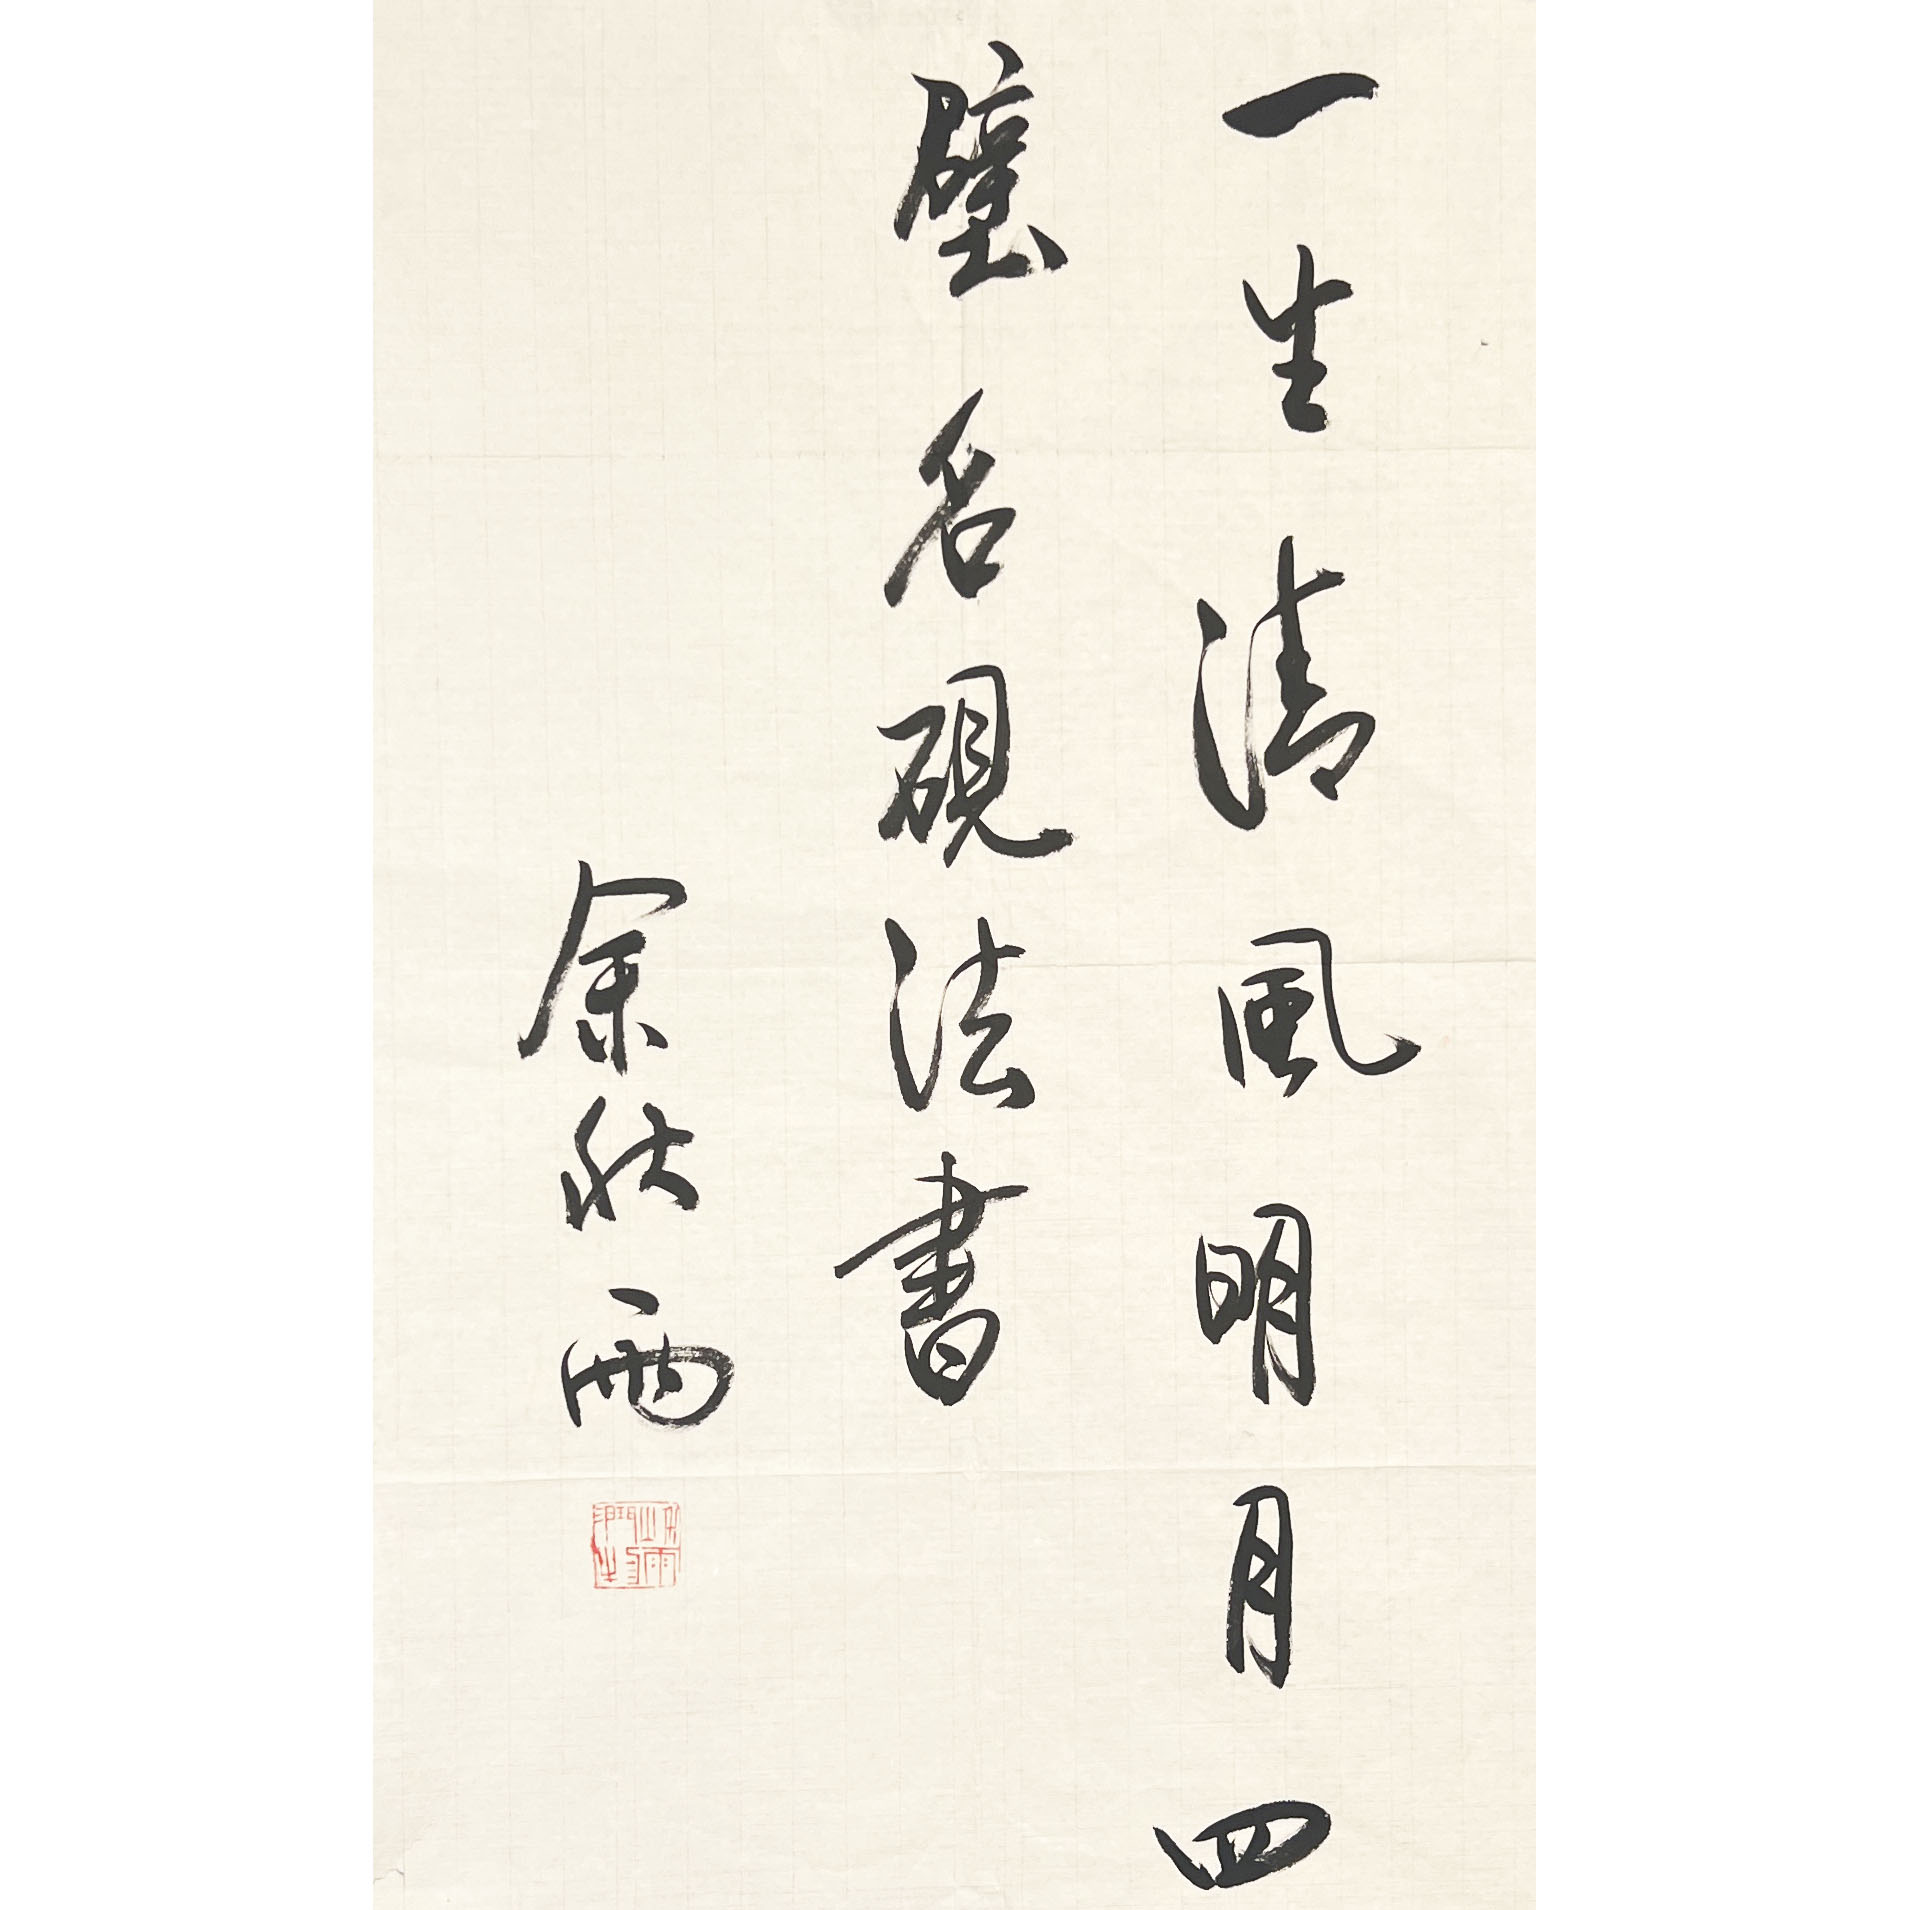 一生清風明月四
壁名硯法書
余秋雨